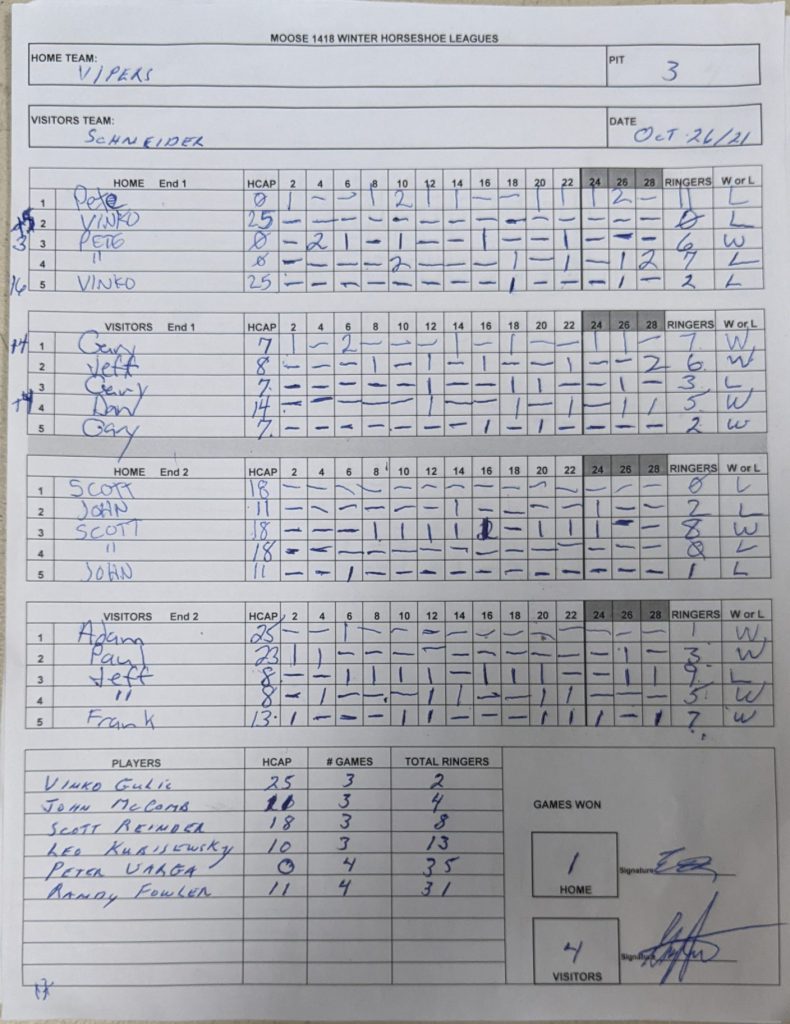 MOOSE 1418 WINTER HORSESHOE LEAGUES
HOME TEAM: VIPERS PIT 3
VISITORS TEAM: SCHNEIDER DATE OCT 26/21
HOME End 1 HCAP 2 4 6 8 10 12 14 16 18 20 22 24 26 28 RINGERS W or L
1 Pete 0 1 - - 1 2 1 1 - - 1 1 1 2 - 11 L
2 VINKO 25 - - - - - - - - - - - - - - 0 L
3 3 PETE 0 - 2 1 - 1 - - 1 - - 1 - - - 6 W
4 " 0 - - - - 2 - - - 1 - 1 - 1 2 7 L
16 5 VINKO 25 - - - - - - - - 1 - - - 1 - 2 L
VISITORS End 1 HCAP 2 4 6 8 10 12 14 16 18 20 22 24 26 28 RINGERS W or L
1 Gary 7 1 - 2 - - 1 - - 1 - - 1 1 - 7 W
2 Jeff 8 - - - 1 - 1 - 1 - - 1 - - 2 6 W
3 Gary 7 - - - - - 1 - - 1 1 - - 1 - 3 L
4 Dan 14 - - - - - 1 - - 1 - 1 - 1 1 5 W
5 Gary 7 - - - - - - - 1 - 1 - - - - 2 W
HOME End 2 HCAP 2 4 6 8 10 12 14 16 18 20 22 24 26 28 RINGERS W or L
1 SCOTT 18 - - - - - - - - - - - - - - 0 L
2 JOHN 11 - - - - - - 1 - - - - 1 - - 2 L
3 SCOTT 18 - - - 1 1 1 1 1 - 1 1 1 - - 8 W
4 " 18 - - - - - - - - - - - - - - 0 L
5 JOHN 11 - - 1 - - - - - - - - - - - 1 L
VISITORS End 2 HCAP 2 4 6 8 10 12 14 16 18 20 22 24 26 28 RINGERS W or L
1 Adam 25 - - 1 - - - - - - - - - - - 1 W
2 Paul 23 1 1 - - - - - - - - - - 1 - 3 W
3 Jeff 8 - - 1 1 1 1 - 1 1 1 - - 1 1 9 L
4 " 8 - 1 - - - 1 1 - - 1 1 - - - 5 W
5 Frank 13 1 - - - 1 1 - - - 1 1 1 - 1 7 W
PLAYERS HCAP # GAMES TOTAL RINGERS
VINKO GULIC 25 3 2
JOHN McCOMB 11 3 4
SCOTT REINDER 18 3 8
LEO KURISEWSKY 10 3 13
PETER VARGA 0 4 35
RANDY FOWLER 11 4 31
GAMES WON
1 HOME Signature
4 VISITORS Signature